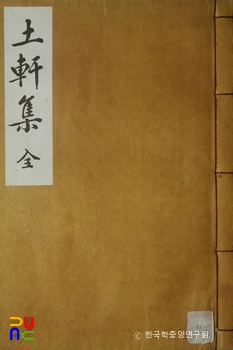 土軒集 全
ⓒ 한국학중앙연구원